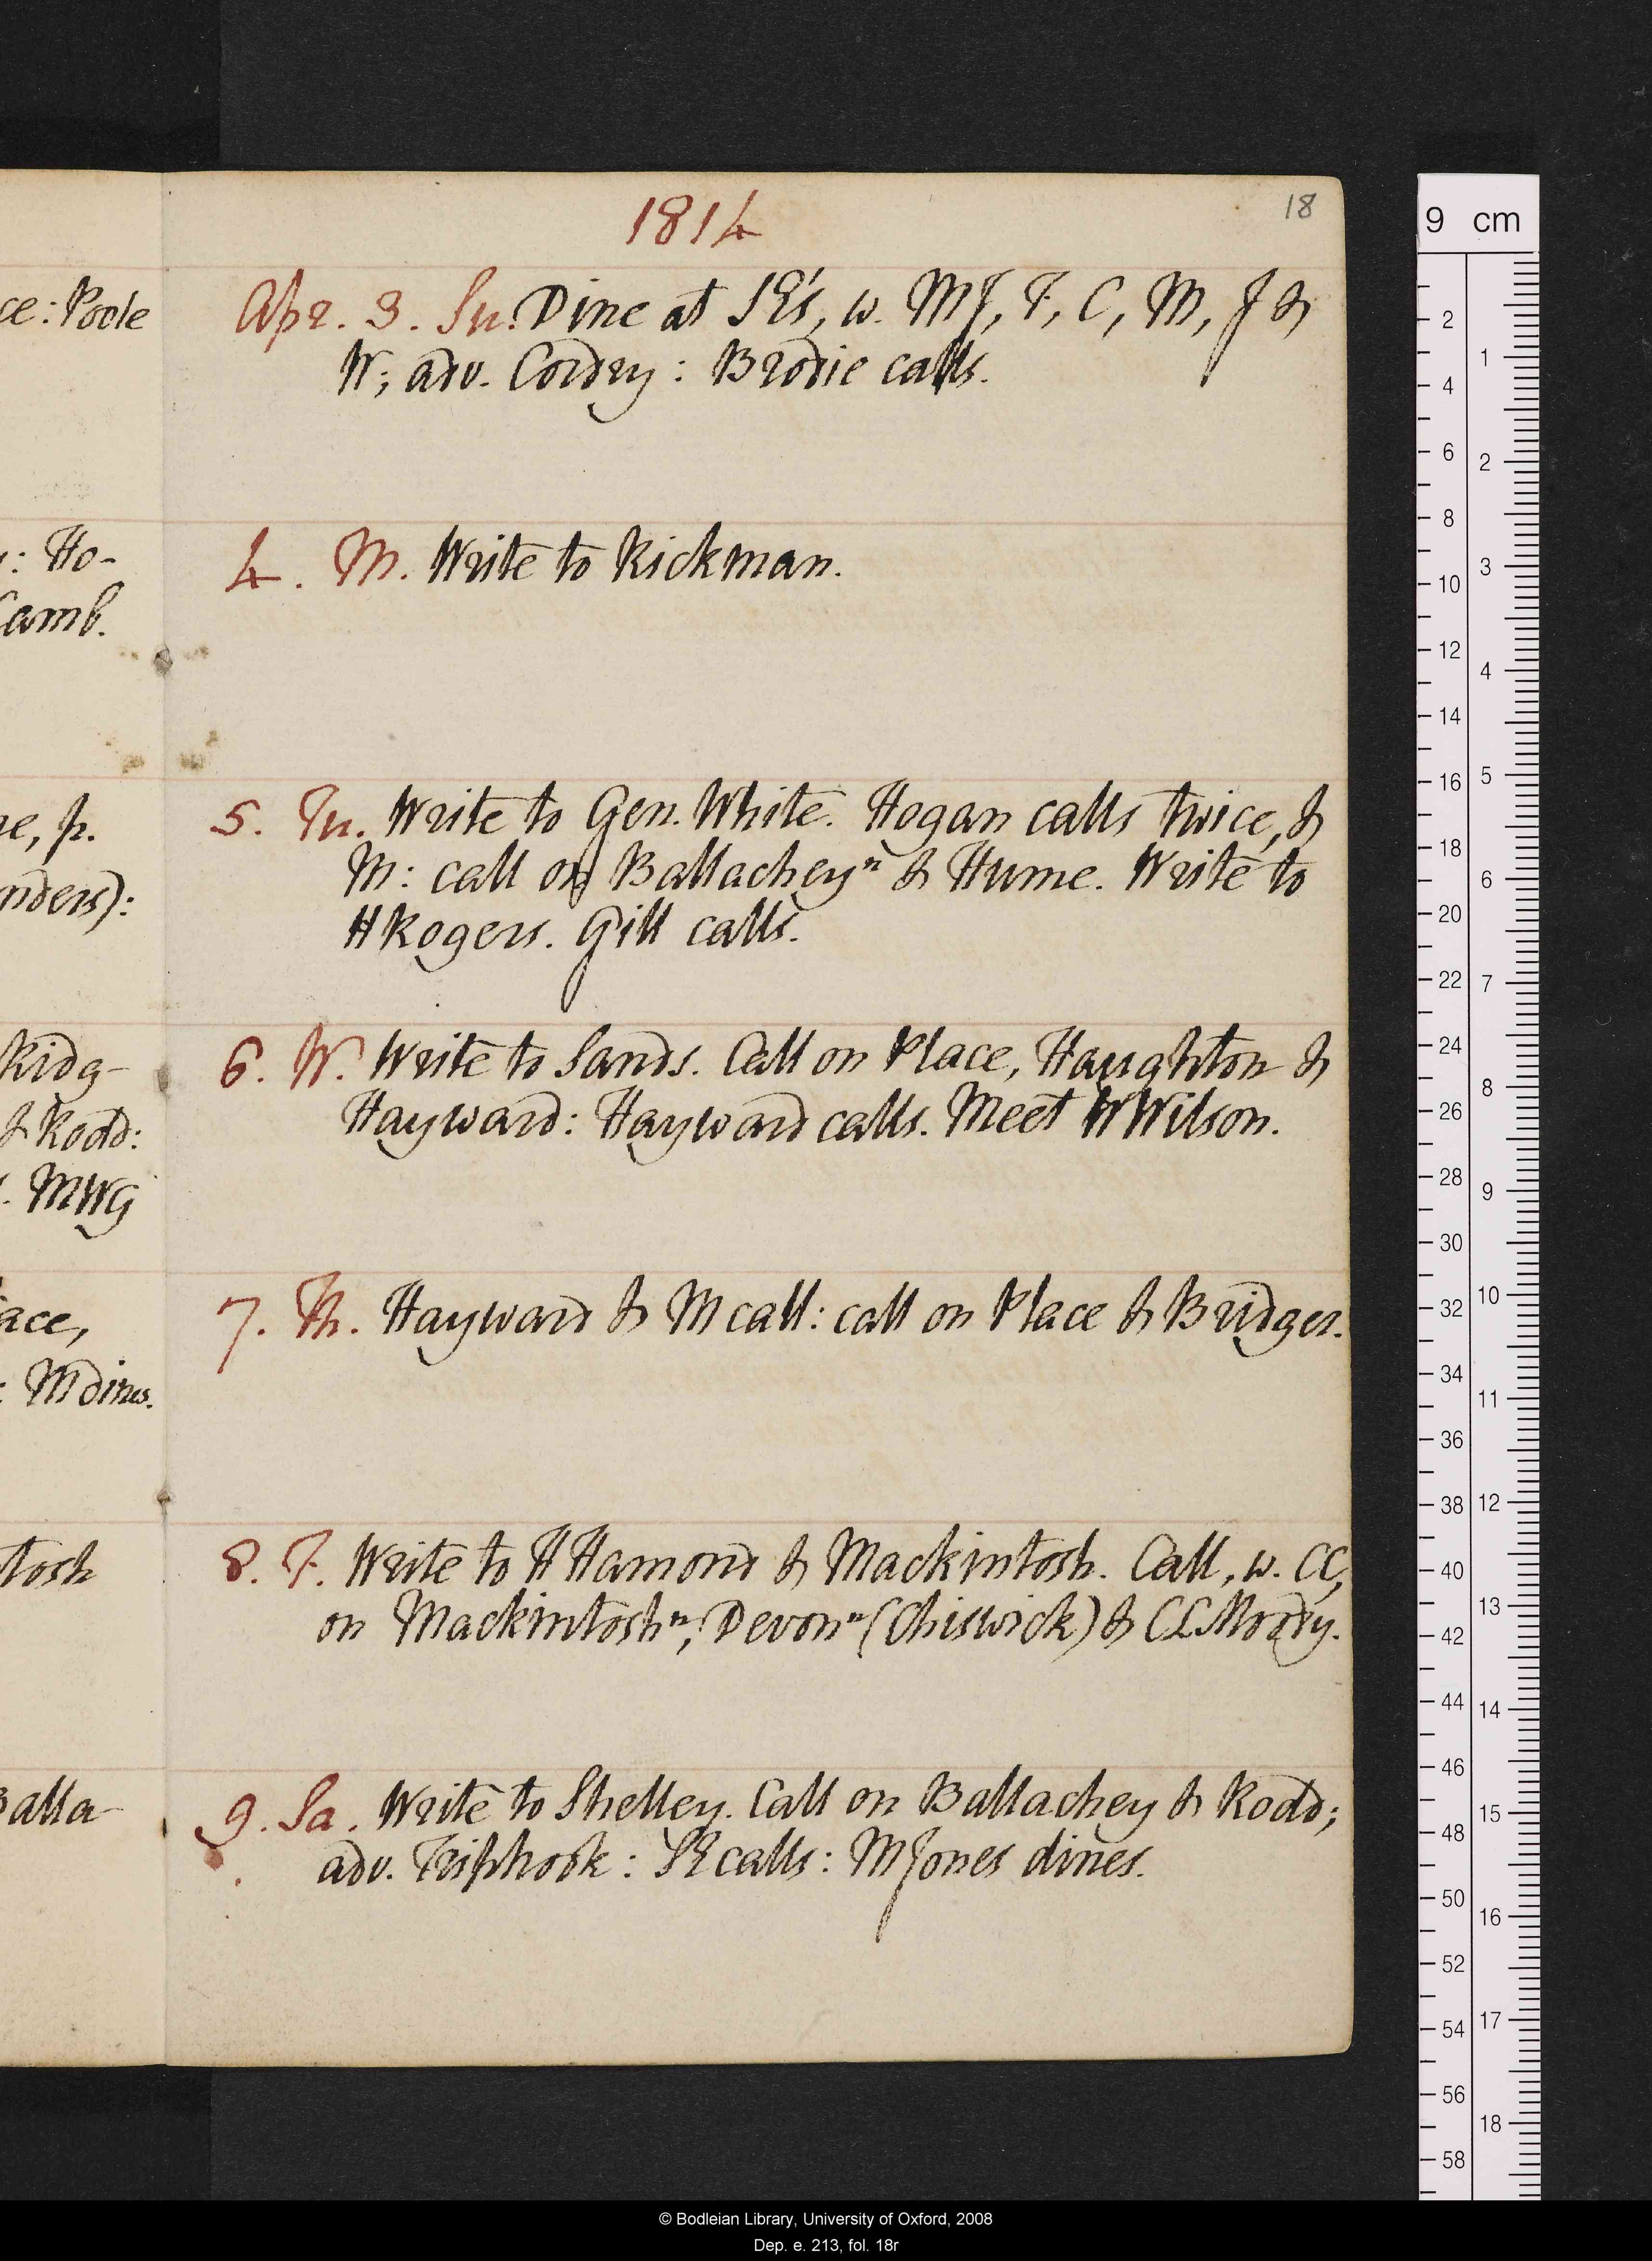 1814
18
ce: Poole
: Ho-
Lamb.
ne, p.
nders):
Ridg-
& Rodd:
. MWG
lace,
: M dines.
tosh
Balla-
Apr. 3. Su. Dine at SE's, w. MJ, F, C, M, J &
W; adv. Cordry: Brodie calls.
4. M. Write to Rickman.
5. Tu. Write to Gen. White. Hogan calls twice, &
M: call on Ballachey n & Hume. Write to
H Rogers. Gill calls.
6. W. Write to Sands. Call on Place, Haughton &
Hayward: Hayward calls. Meet W Wilson.
7. Th. Hayward & M call: call on Place & Bridger.
8. F. Write to H Hamond & Mackintosh. Call, w. CC,
on Mackintosh n, Devon n (Chiswick) & CL Moody.
9. Sa. Write to Shelley. Call on Ballachey & Rodd;
adv. Triphook: SE calls: M Jones dines.
9 cm
2
4
6
8
10
12
14
16
18
20
22
24
26
28
30
32
34
36
38
40
42
44
46
48
50
52
54
56
58
1
2
3
4
5
6
7
8
9
10
11
12
13
14
15
16
17
18
© Bodleian Library, University of Oxford, 2008
Dep. e. 213, fol. 18r